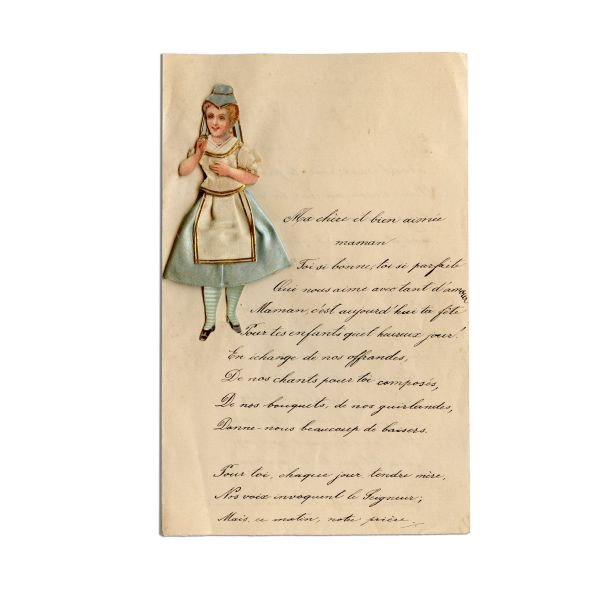 Ma chère et bien aimée
maman
Toi si bonne, toi si parfaite
Qui nous aime avec tant d'amour
Maman, c'est aujourd'hui ta fête
Pour tes enfants quel heureux jour!
En échange de nos offrandes,
De nos chants pour toi composés,
De nos bouquets, de nos guirlandes,
Donne-nous beaucoup de baisers.
Pour toi, chaque jour, tendre mère,
Nos voix invoquent le Seigneur;
Mais, ce matin, notre prière